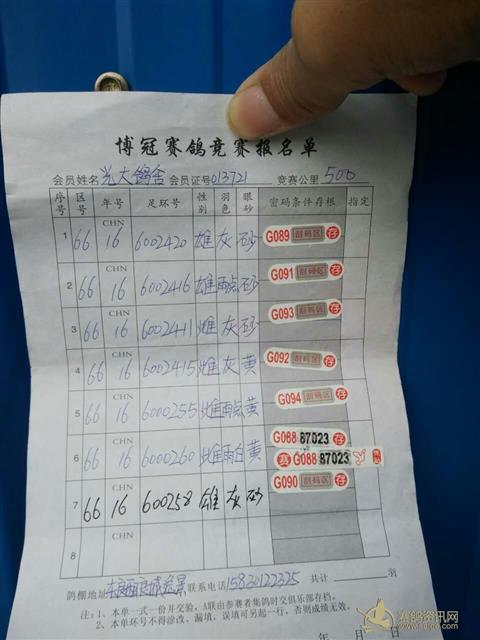 博冠赛鸽竞赛报名单
会员姓名 光大鸽舍 会员证号 013721 竞赛公里 500
序号 区号 年号 足环号 性别 羽色 眼砂 密码条件存根 指定
1 66 CHN 16 6002420 雄 灰 砂 G089 刮码区 存
2 66 CHN 16 6002416 雄 雨点 砂 G091 刮码区 存
3 66 CHN 16 6002441 雌 灰 砂 G093 刮码区 存
4 66 CHN 16 6002415 雌 灰 黄 G092 刮码区 存
5 66 CHN 16 6000255 雌 雨点 黄 G094 刮码区 存
6 66 CHN 16 6000260 雌 雨白 黄 G088 87023 存
赛 G088 87023
7 66 CHN 16 600258 雄 灰 砂 G090 刮码区 存
8 CHN
鸽棚地址 联系电话 15830122325 共计 羽
注：1、本单一式一份并交验，A联由参赛者集鸽时交俱乐部存档。
2、本单环号不得涂改、漏填，误填可另起一行，否则成绩无效。
年 月
赛鸽资讯网